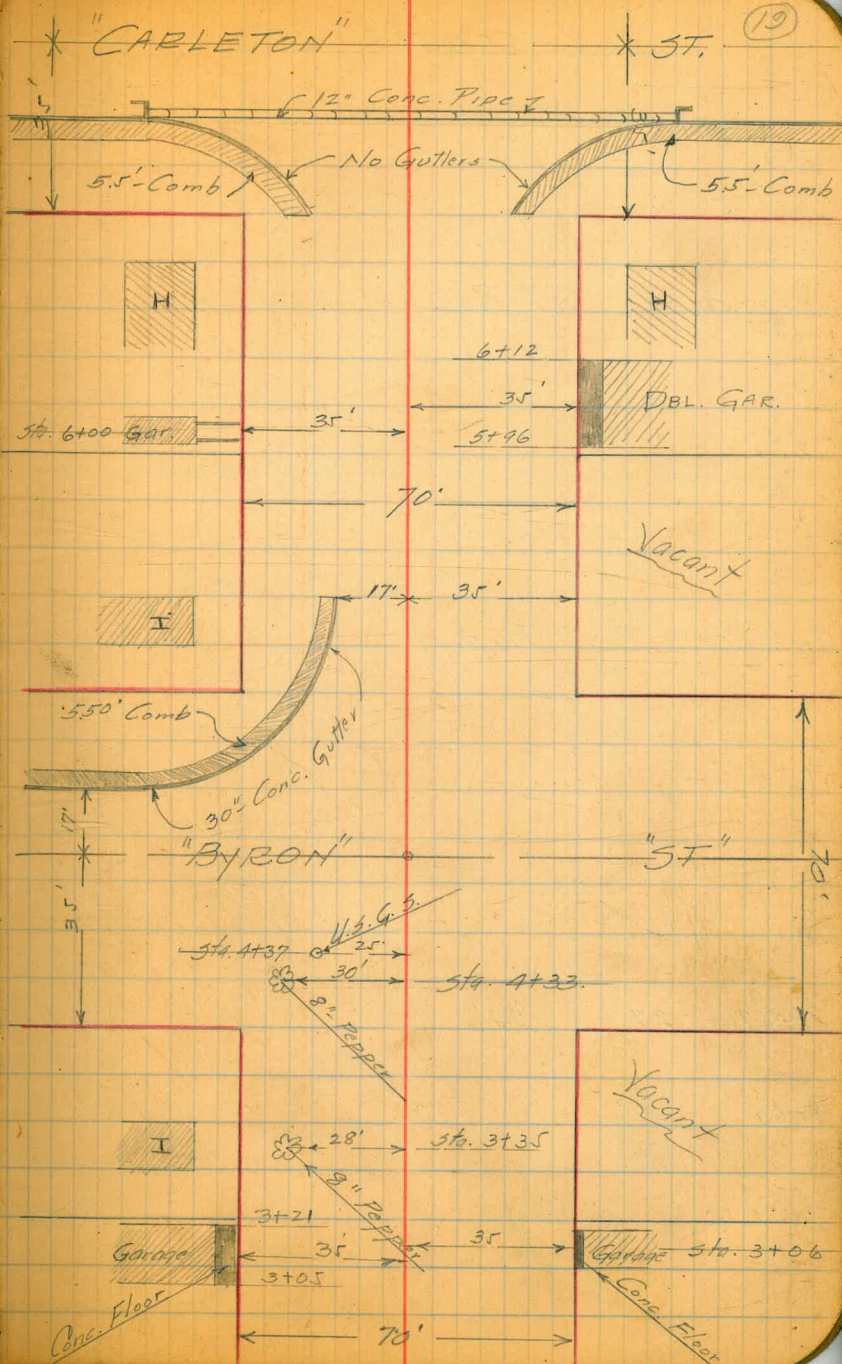 19
"CARLETON" ST.
12" Conc. Pipe
35'
No Gutters
5.5'-Comb
5.5'-Comb
H
H
6+12
35'
DBL. GAR.
Sta. 6+00 Gar.
35'
5+96
70'
Vacant
17' 35'
H
5.50' Comb
30"-Conc. Gutter
17'
"BYRON" "ST"
70'
35'
U.S.G.S.
Sta. 4+37
25'
30'
Sta. 4+33
8"-Pepper
Vacant
H
28'
Sta. 3+35
8" Pepper
3+21
Garage
35'
35
Garage Sta. 3+06
3+05
Conc. Floor
Conc. Floor
70'